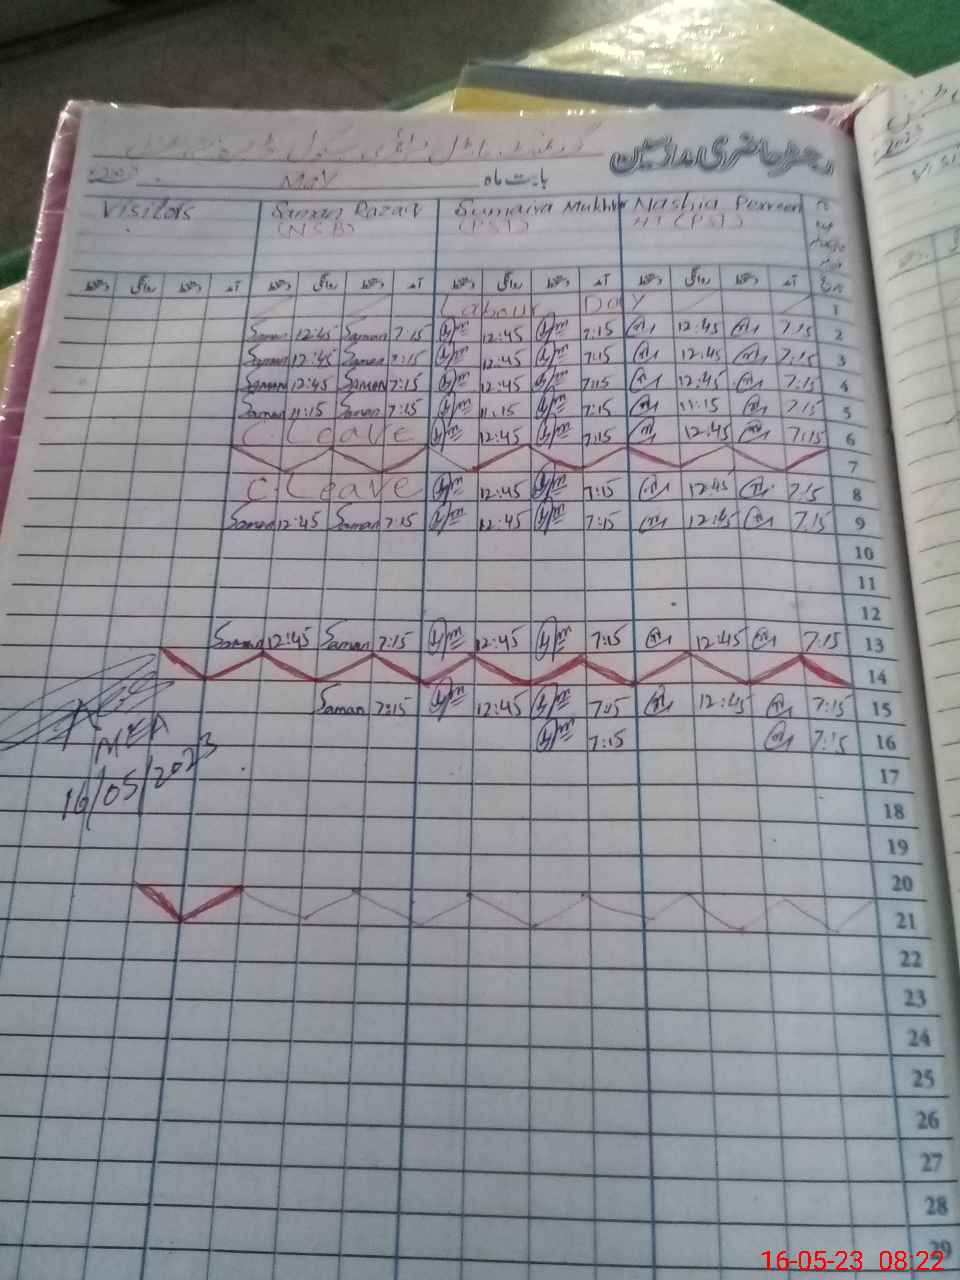 رجسٹر حاضری مدرسین
بابت ماہ May
Visitors Saman Razaq Sumaira Mukhtar Nashia Perveen
(NSB) (PST) HT (PST)
دستخط روانگی دستخط آمد دستخط روانگی دستخط آمد دستخط روانگی دستخط آمد دستخط روانگی دستخط آمد
Labour Day 1
Saman 12:45 Saman 7:15 12:45 7:15 12:45 7:15 2
Saman 12:45 Saman 7:15 12:45 7:15 12:45 7:15 3
Saman 12:45 Saman 7:15 12:45 7:15 12:45 7:15 4
Saman 11:15 Saman 7:15 11:15 7:15 11:15 7:15 5
C. Leave 12:45 7:15 12:45 7:15 6
7
C. Leave 12:45 7:15 12:45 7:15 8
Saman 12:45 Saman 7:15 12:45 7:15 12:45 7:15 9
10
11
12
Saman 12:45 Saman 7:15 12:45 7:15 12:45 7:15 13
14
Saman 7:15 12:45 7:15 12:45 7:15 15
7:15 7:15 16
MEA
16/05/2023
17
18
19
20
21
22
23
24
25
26
27
28
29
16-05-23 08:22